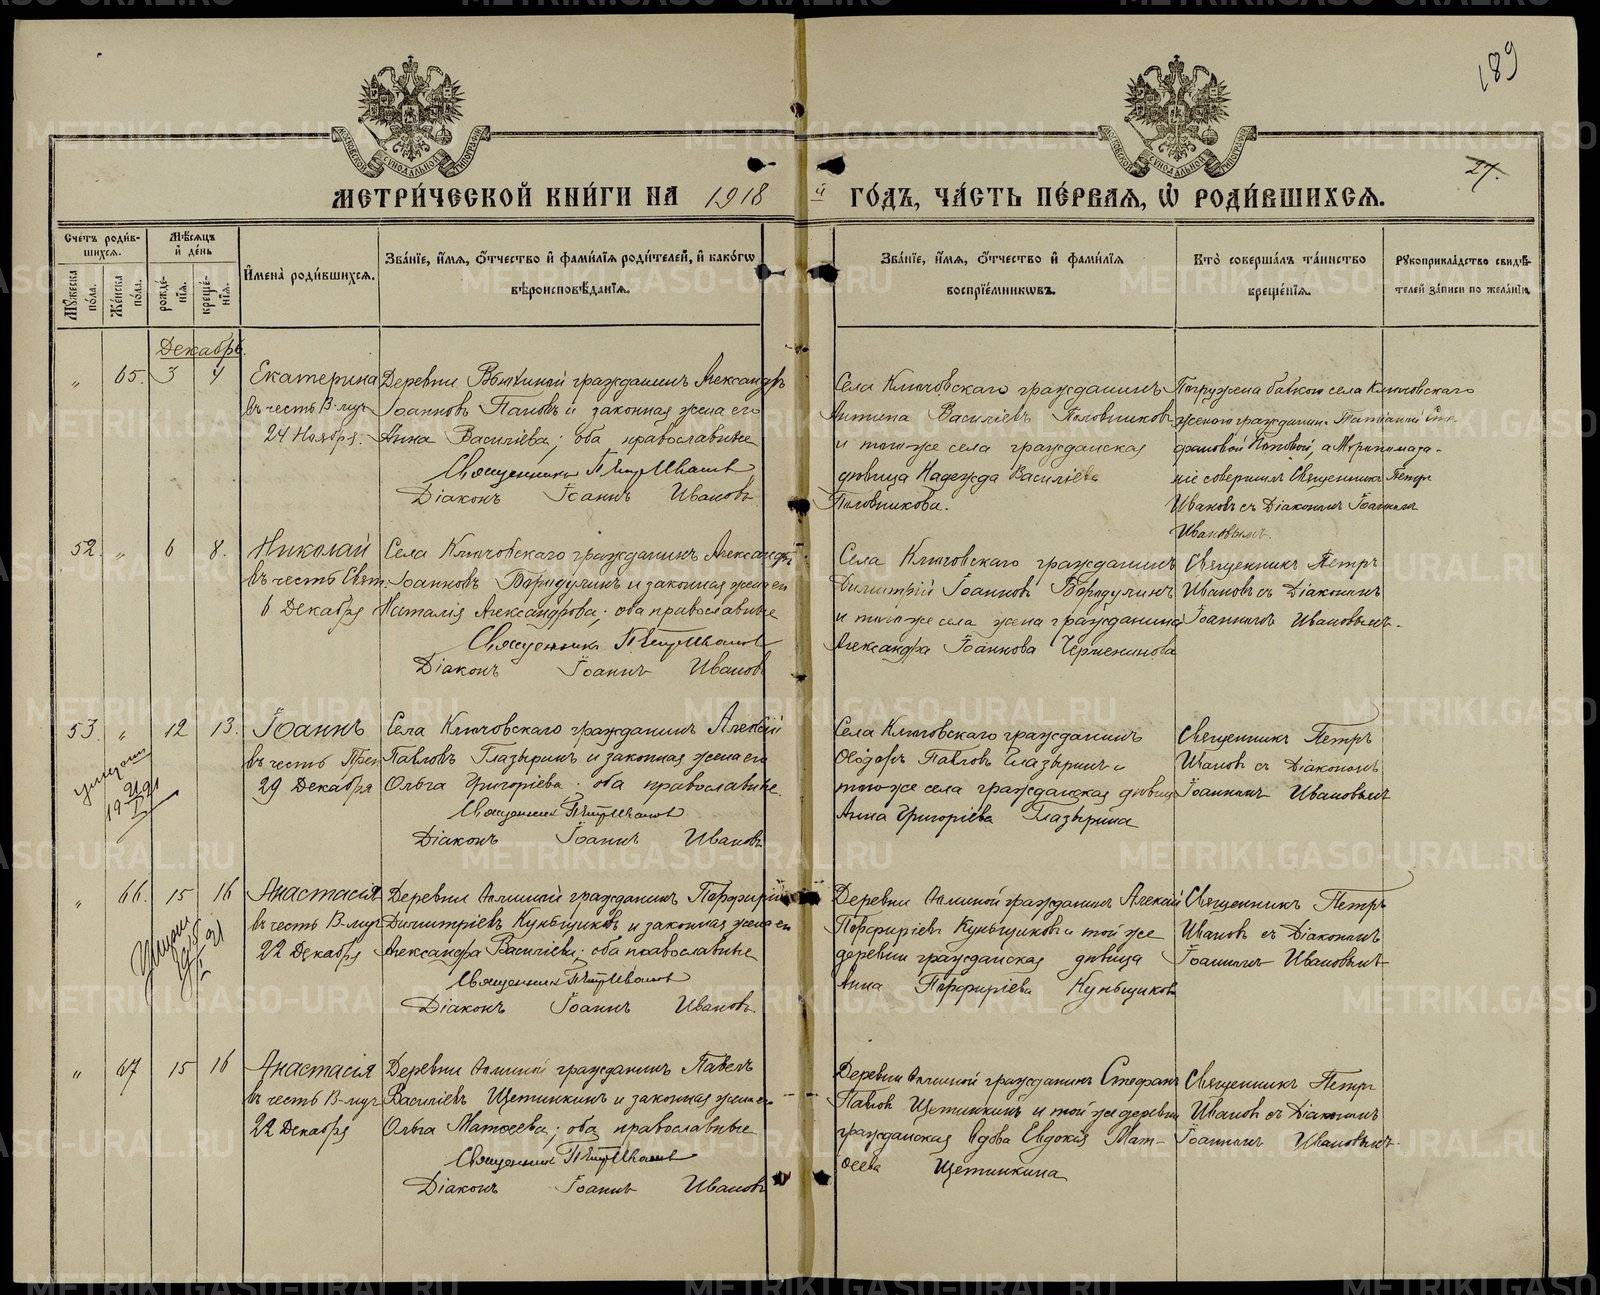 189
27.
МЕТРИ́ЧЕСКОЙ КНИ́ГИ НА 1918 й ГО́ДЪ, ЧА́СТЬ ПЕ́РВАЯ, Ѡ РОДИ́ВШИХСЯ.
Сче́тъ роди́вшихся.
Му́жеска по́ла.
Же́нска по́ла.
Мѣ́сяцъ и де́нь
рожде́нїя.
креще́нїя.
И́мена роди́вшихся.
Зва́нїе, и́мя, ѻ́тчество и фами́лїя роди́телей, и како́гѡ вѣроисповѣ́данїя.
Зва́нїе, и́мя, ѻ́тчество и фами́лїя воспрїе́мникѡвъ.
Кто̀ соверша́лъ та́инство креще́нїя.
Рукоприкла́дство свидѣ́телей за́писи по жела́нїю.
Декабрь.
„ 65. 3 4
Екатерина
въ честь В-муч
24 Ноября.
Деревни Вьюхиной гражданинъ Александръ
Іоанновъ Пановъ и законная жена его
Анна Василіева; оба православные
Священникъ Петръ Ивановъ
Діаконъ Іоаннъ Ивановъ
Села Ключовскаго гражданинъ
Антипа Василіевъ Половниковъ
и того же села гражданская
дѣвица Надежда Василіева
Половникова.
Погружена бабкою села Ключовскаго
женою гражданина Татіаной Сте-
фановой Поповой, а Мѵропомаза-
ніе совершилъ Священникъ Петръ
Ивановъ съ Діакономъ Іоанномъ
Ивановымъ.
52. „ 6 8.
Николай
въ честь Свят.
6 Декабря
Села Ключовскаго гражданинъ Александръ
Іоанновъ Бородулинъ и законная жена его
Наталія Александрова; оба православные
Священникъ Петръ Ивановъ
Діаконъ Іоаннъ Ивановъ
Села Ключовскаго гражданинъ
Димитрій Іоанновъ Бородулинъ
и того же села жена гражданина
Александра Іоаннова
Священникъ Петръ
Ивановъ съ Діакономъ
Іоанномъ Ивановымъ.
53. „ 12 13.
умеръ
19
Іоаннъ
въ честь Преп
29 Декабря
Села Ключовскаго гражданинъ Алексій
Павловъ Глазыринъ и законная жена его
Ольга Григоріева; оба православные.
Священникъ Петръ Ивановъ
Діаконъ Іоаннъ Ивановъ
Села Ключовскаго гражданинъ
Ѳеодоръ Павловъ Глазыринъ и
того же села гражданская дѣвица
Анна Григоріева Глазырина
Священникъ Петръ
Ивановъ съ Діакономъ
Іоанномъ Ивановымъ
„ 66. 15 16
Анастасія
въ честь В-муч
22 Декабря
Деревни гражданинъ Порфирій
Димитріевъ Куньщиковъ и законная жена его
Александра Василіева; оба православные
Священникъ Петръ Ивановъ
Діаконъ Іоаннъ Ивановъ.
Деревни гражданинъ Алексій
Порфиріевъ Куньщиковъ и той же
деревни гражданская дѣвица
Анна Порфиріева Куньщикова
Священникъ Петръ
Ивановъ съ Діакономъ
Іоанномъ Ивановымъ
„ 67 15 16
Анастасія
въ честь В-муч
22 Декабря
Деревни гражданинъ Павелъ
Василіевъ Щетинкинъ и законная жена его
Ольга Матѳеева; оба православные
Священникъ Петръ Ивановъ
Діаконъ Іоаннъ Ивановъ
Деревни гражданинъ Стефанъ
Павловъ Щетинкинъ и той же деревни
гражданская вдова Евдокія Мат-
ѳеева Щетинкина
Священникъ Петръ
Ивановъ съ Діакономъ
Іоанномъ Ивановымъ.
METRIKI.GASO-URAL.RU